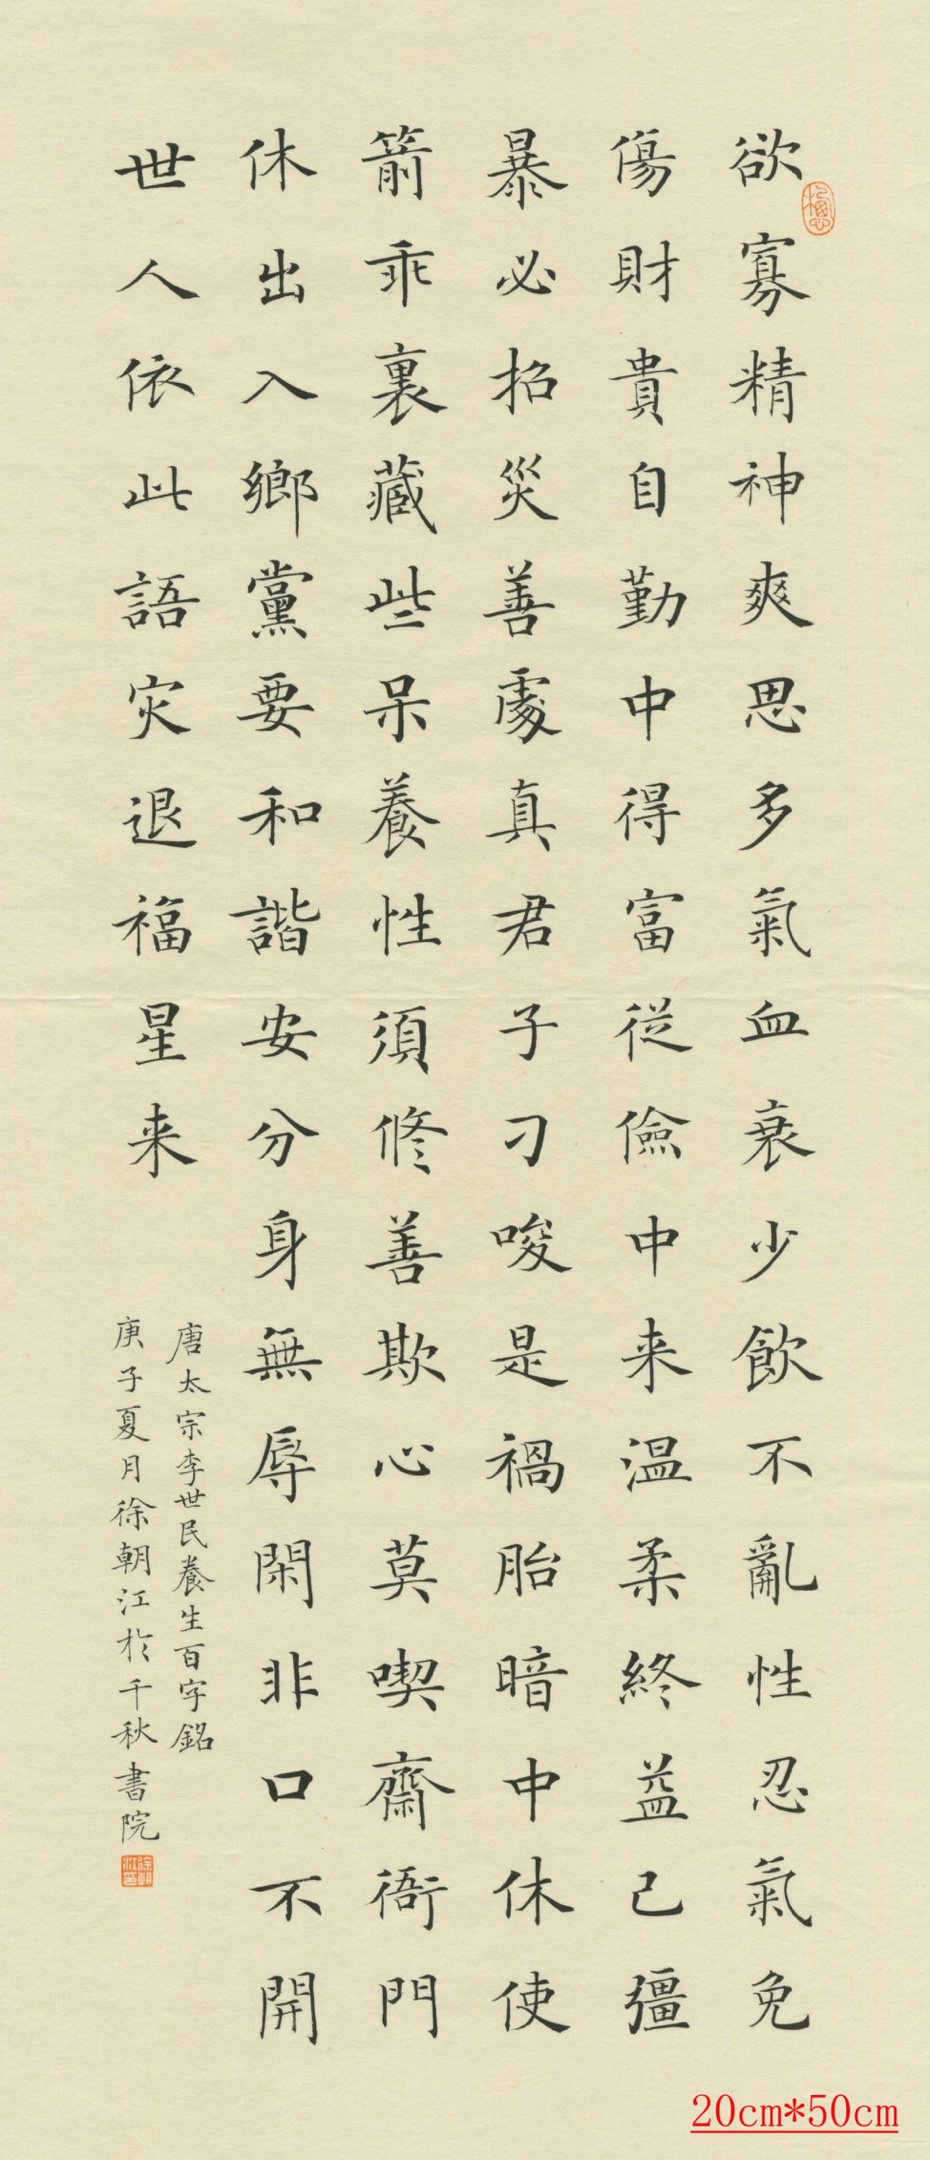 欲寡精神爽思多氣血衰少飲不亂性忍氣免
傷財貴自勤中得富從儉中来温柔終益己彊
暴必招災善處真君子刁唆是禍胎暗中休使
箭乖裏藏些呆養性須修善欺心莫喫齋衙門
休出入鄉黨要和諧安分身無辱閑非口不開
世人依此語灾退福星来
唐太宗李世民養生百字銘
庚子夏月徐朝江於千秋書院
徐朝江
20cm*50cm